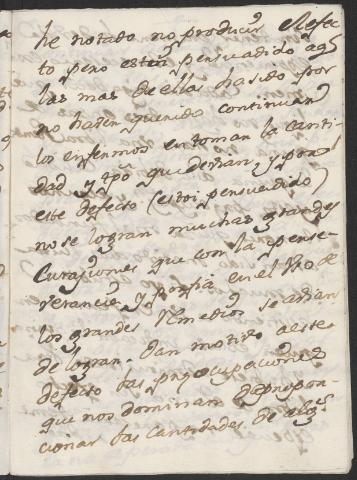 he notado no producir el efec
to pero estoi persuadido a qe
las mas de ellas ha sido por
no haber querido continuar
los enfermos en tomar la canti
dad y tpo que devian, y por
este defecto (estoi persuadido)
no se logran muchas grandes
Curaziones que con la perse
verancia y porfia en el Uso de
los grandes Remedios se avian
de lograr. Dan motivo a este
defecto las preocupaciones
que nos dominan de propor
cionar las cantidades de algs